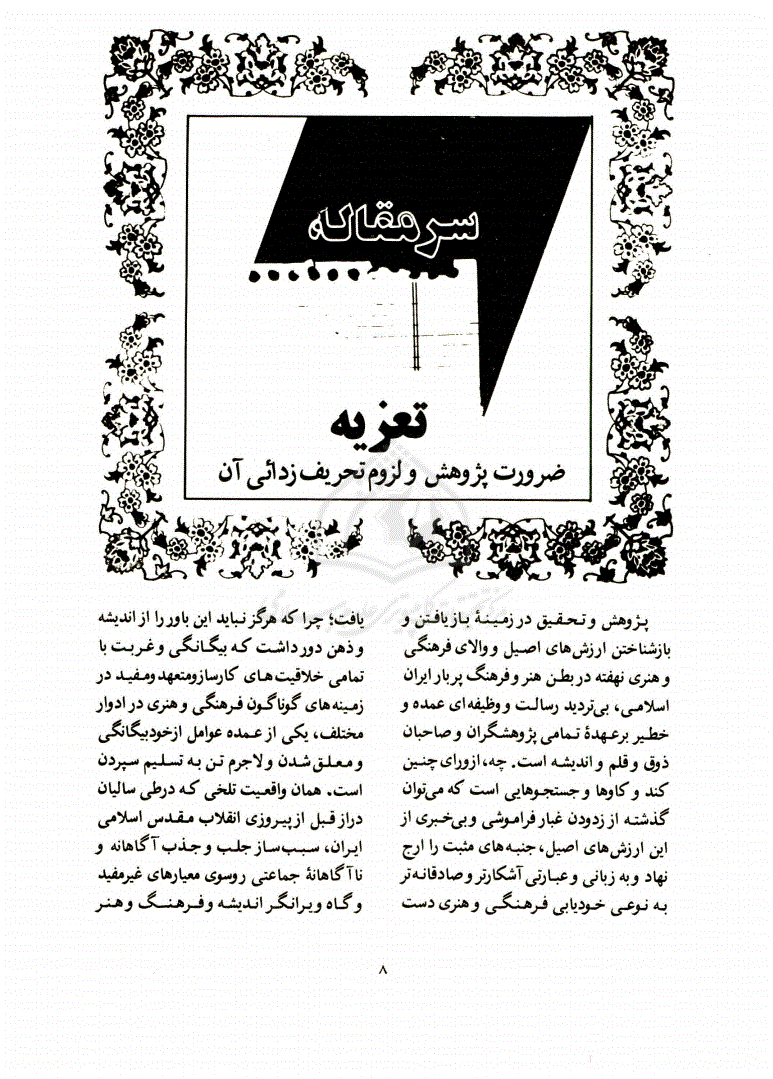 سرمقاله
تعزیه
ضرورت پژوهش و لزوم تحریف زدائی آن
پژوهش و تحقیق در زمینهٔ باز یافتن و
بازشناختن ارزش‌های اصیل و والای فرهنگی
و هنری نهفته در بطن هنر و فرهنگ پر بار ایران
اسلامی، بی‌تردید رسالت و وظیفه‌ای عمده و
خطیر برعهدهٔ تمامی پژوهشگران و صاحبان
ذوق و قلم و اندیشه است. چه، از ورای چنین
کند و کاوها و جستجوهایی است که می‌توان
گذشته از زدودن غبار فراموشی و بی‌خبری از
این ارزش‌های اصیل، جنبه‌های مثبت را ارج
نهاد و به زبانی و عبارتی آشکارتر و صادقانه‌تر
به نوعی خودیابی فرهنگی و هنری دست
یافت؛ چرا که هرگز نباید این باور را از اندیشه
و ذهن دور داشت که بیگانگی و غربت با
تمامی خلاقیت‌های کارساز و متعهد و مفید در
زمینه‌های گوناگون فرهنگی و هنری در ادوار
مختلف، یکی از عمده عوامل از خودبیگانگی
و معلق شدن و لاجرم تن به تسلیم سپردن
است. همان واقعیت تلخی که در طی سالیان
دراز قبل از پیروزی انقلاب مقدس اسلامی
ایران، سبب‌ساز جلب و جذب آگاهانه و
ناآگاهانهٔ جماعتی روسوی معیارهای غیرمفید
و گاه ویرانگر اندیشه و فرهنگ و هنر
۸